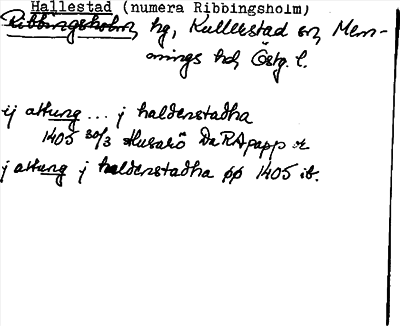 Hallestad (numera Ribbingsholm)
Ribbingsholm, hg, Kullerstad sn, Mem-
mings hd, Östg. l.
ij attung ... j haldenstadha
1405 30/3 Husabö DaRApapp or
j attung j haldenstadha pp 1405 ib.